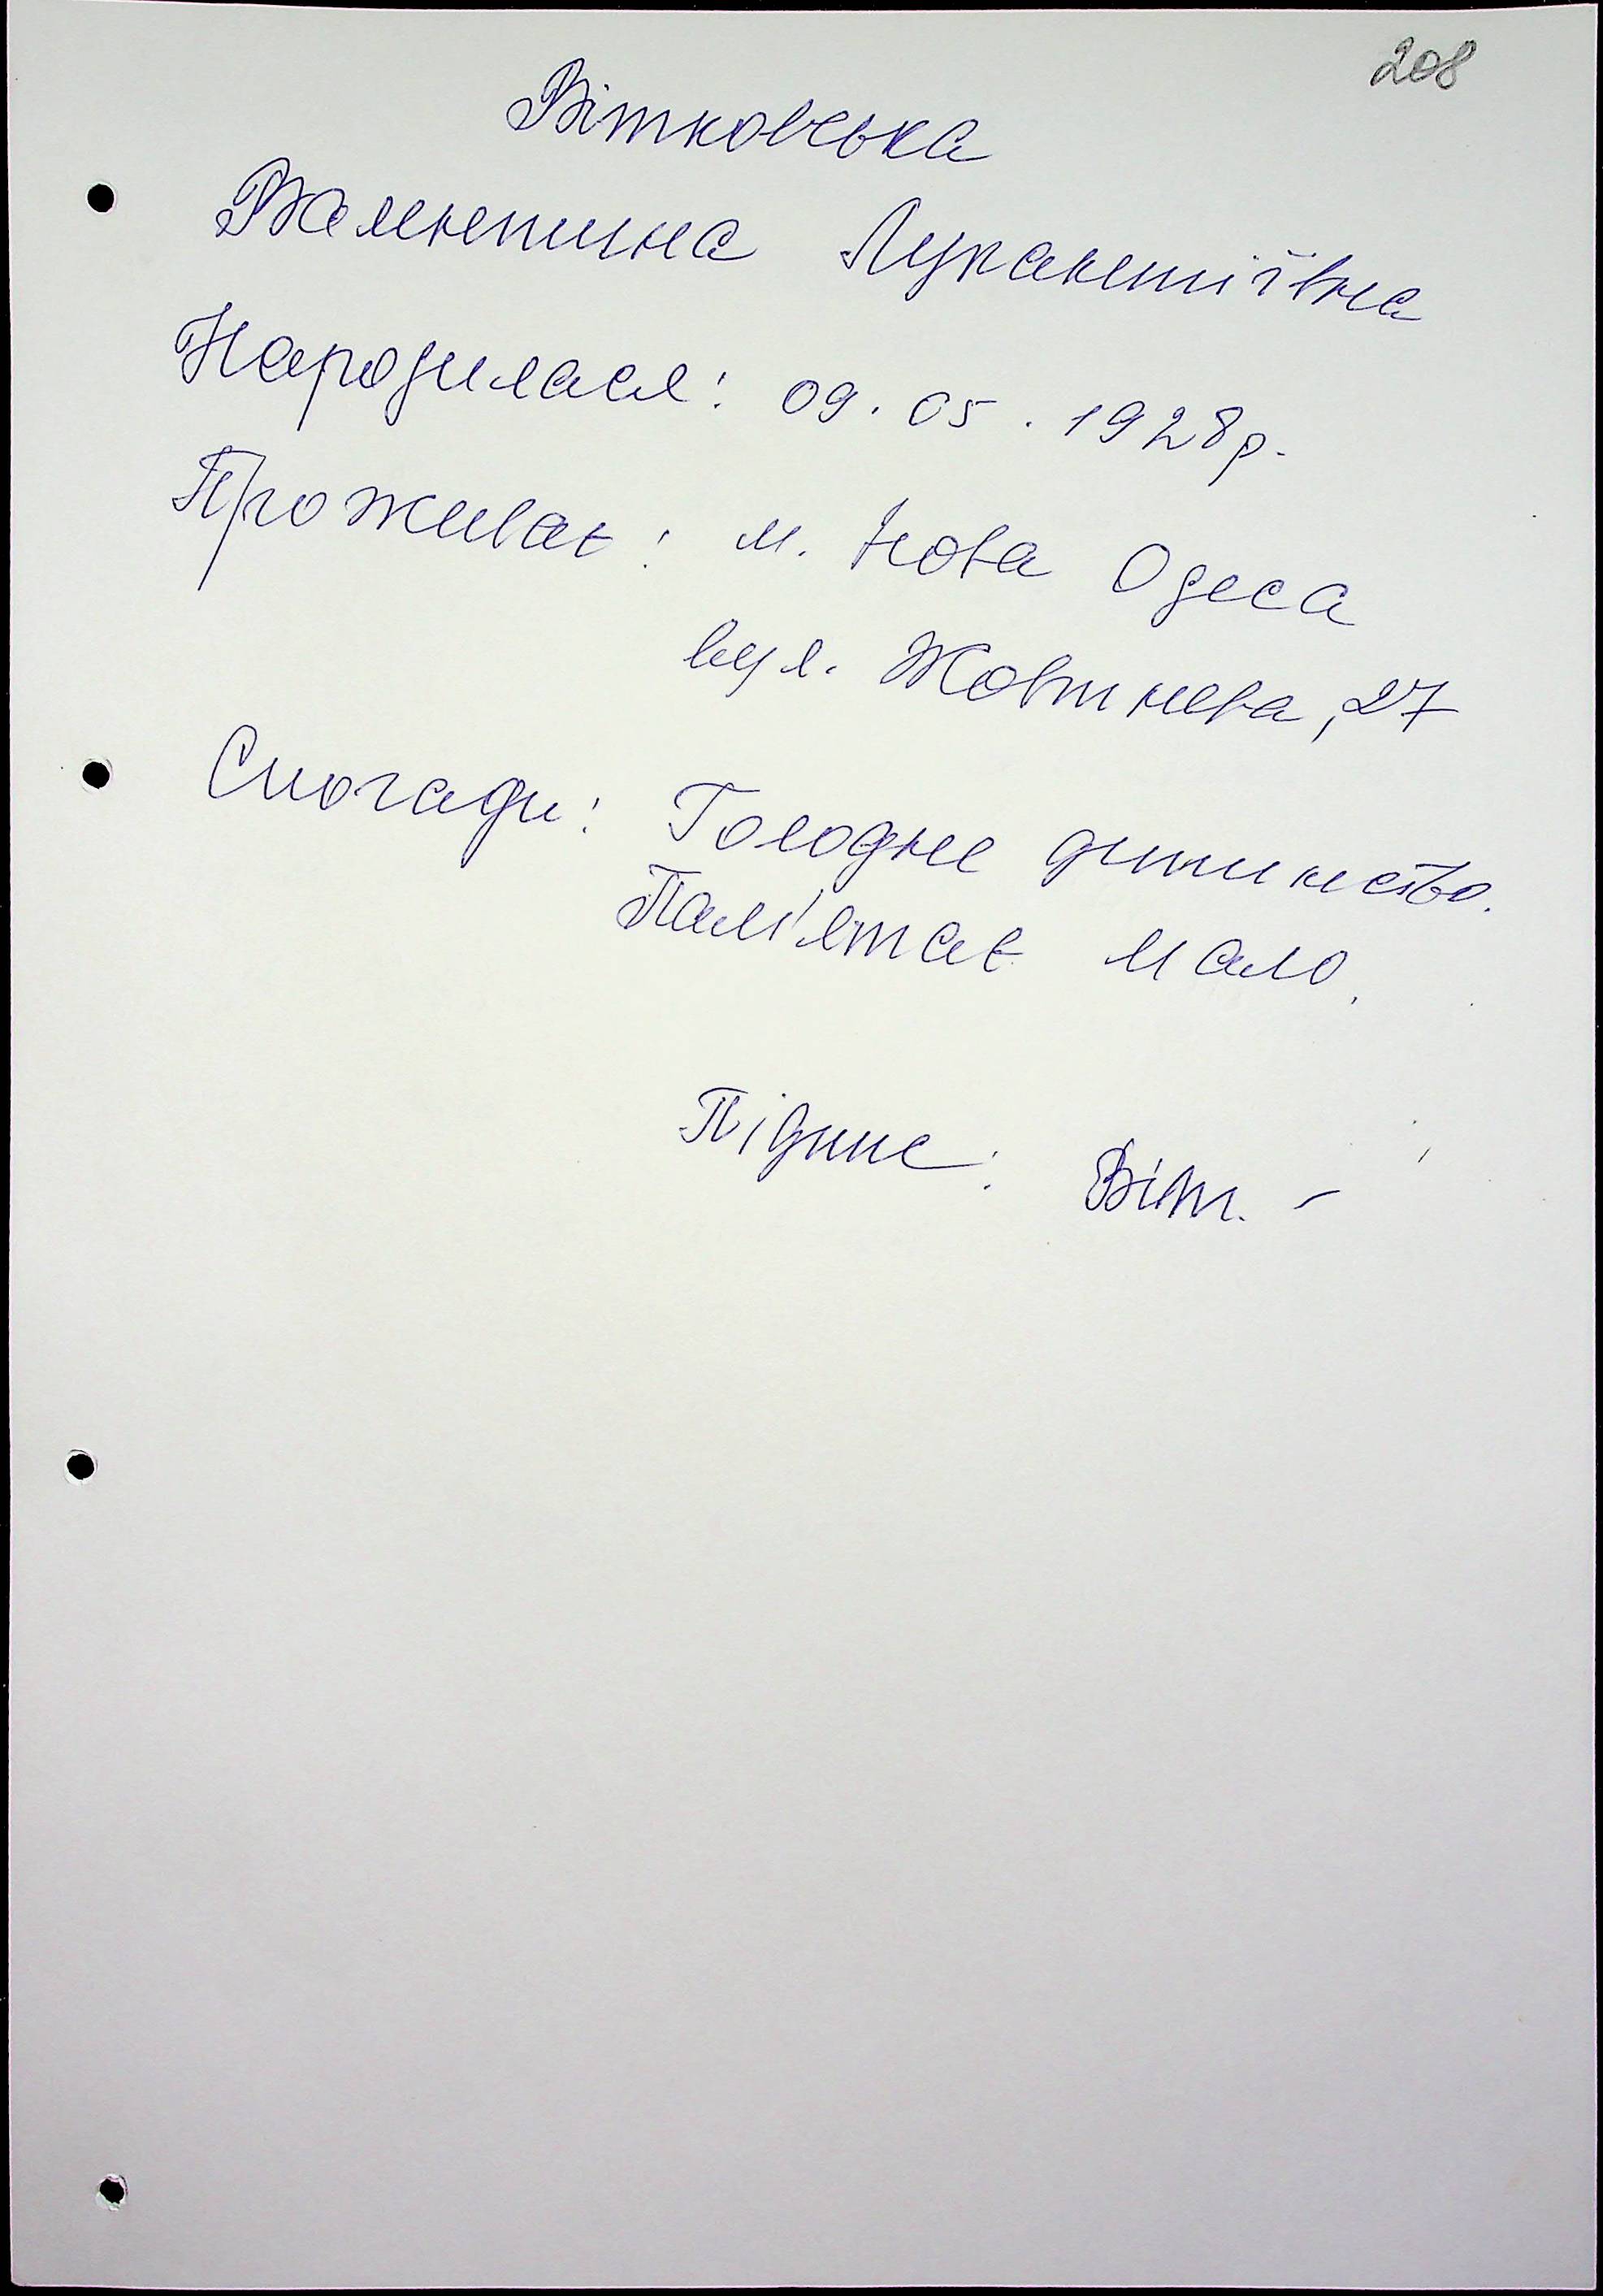 208
Вітковська
Валентина Лукантіївна
Народилася: 09.05.1928р.
Проживає: м. Нова Одеса
вул. Жовтнева, 27
Спогади: Голодне дитинство.
Пам'ятає мало.
Підпис: Віт.